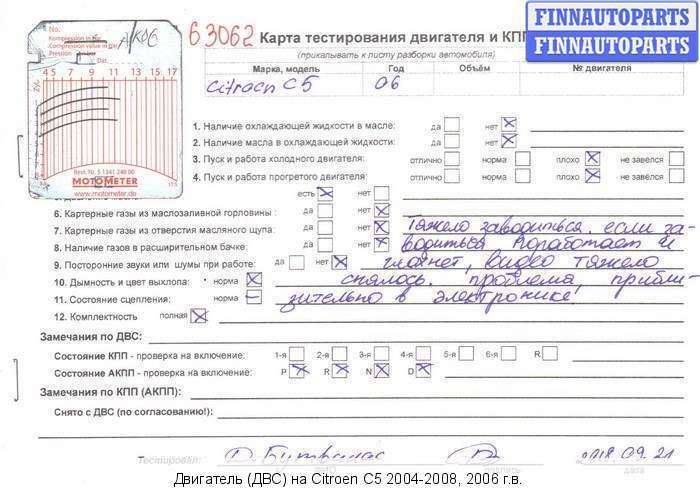 FINNAUTOPARTS
FINNAUTOPARTS
No.
Kompression in bar
Compression value in bar
Pression
Dat.
АКПП
4 5 7 9 11 13 15 17
Best. Nr. 5 1341 246 00
MOTOMETER
www.motometer.de
63062 Карта тестирования двигателя и КПП
(прикалывать к листу разборки автомобиля)
Марка, модель Год Объём № двигателя
Citroen C5 06
1. Наличие охлаждающей жидкости в масле: да нет
2. Наличие масла в охлаждающей жидкости: да нет
3. Пуск и работа холодного двигателя: отлично норма плохо не завёлся
4. Пуск и работа прогретого двигателя: отлично норма плохо не завёлся
есть нет
6. Картерные газы из маслозаливной горловины : да нет
7. Картерные газы из отверстия масляного щупа: да нет Тяжело заводиться. если за-
8. Наличие газов в расширительном бачке: да нет водиться поработает и
9. Посторонние звуки или шумы при работе: да нет глохнет, видео тяжело
10. Дымность и цвет выхлопа: норма снялось. проблема, прибли-
11. Состояние сцепления: норма зительно в электронике
12. Комплектность полная
Замечания по ДВС:
Состояние КПП - проверка на включение: 1-я 2-я 3-я 4-я 5-я 6-я R
Состояние АКПП - проверка на включение: P R N D
Замечания по КПП (АКПП):
Снято с ДВС (по согласованию!):
Тестировал:
ФИО подпись дата
09.21
Двигатель (ДВС) на Citroen C5 2004-2008, 2006 г.в.